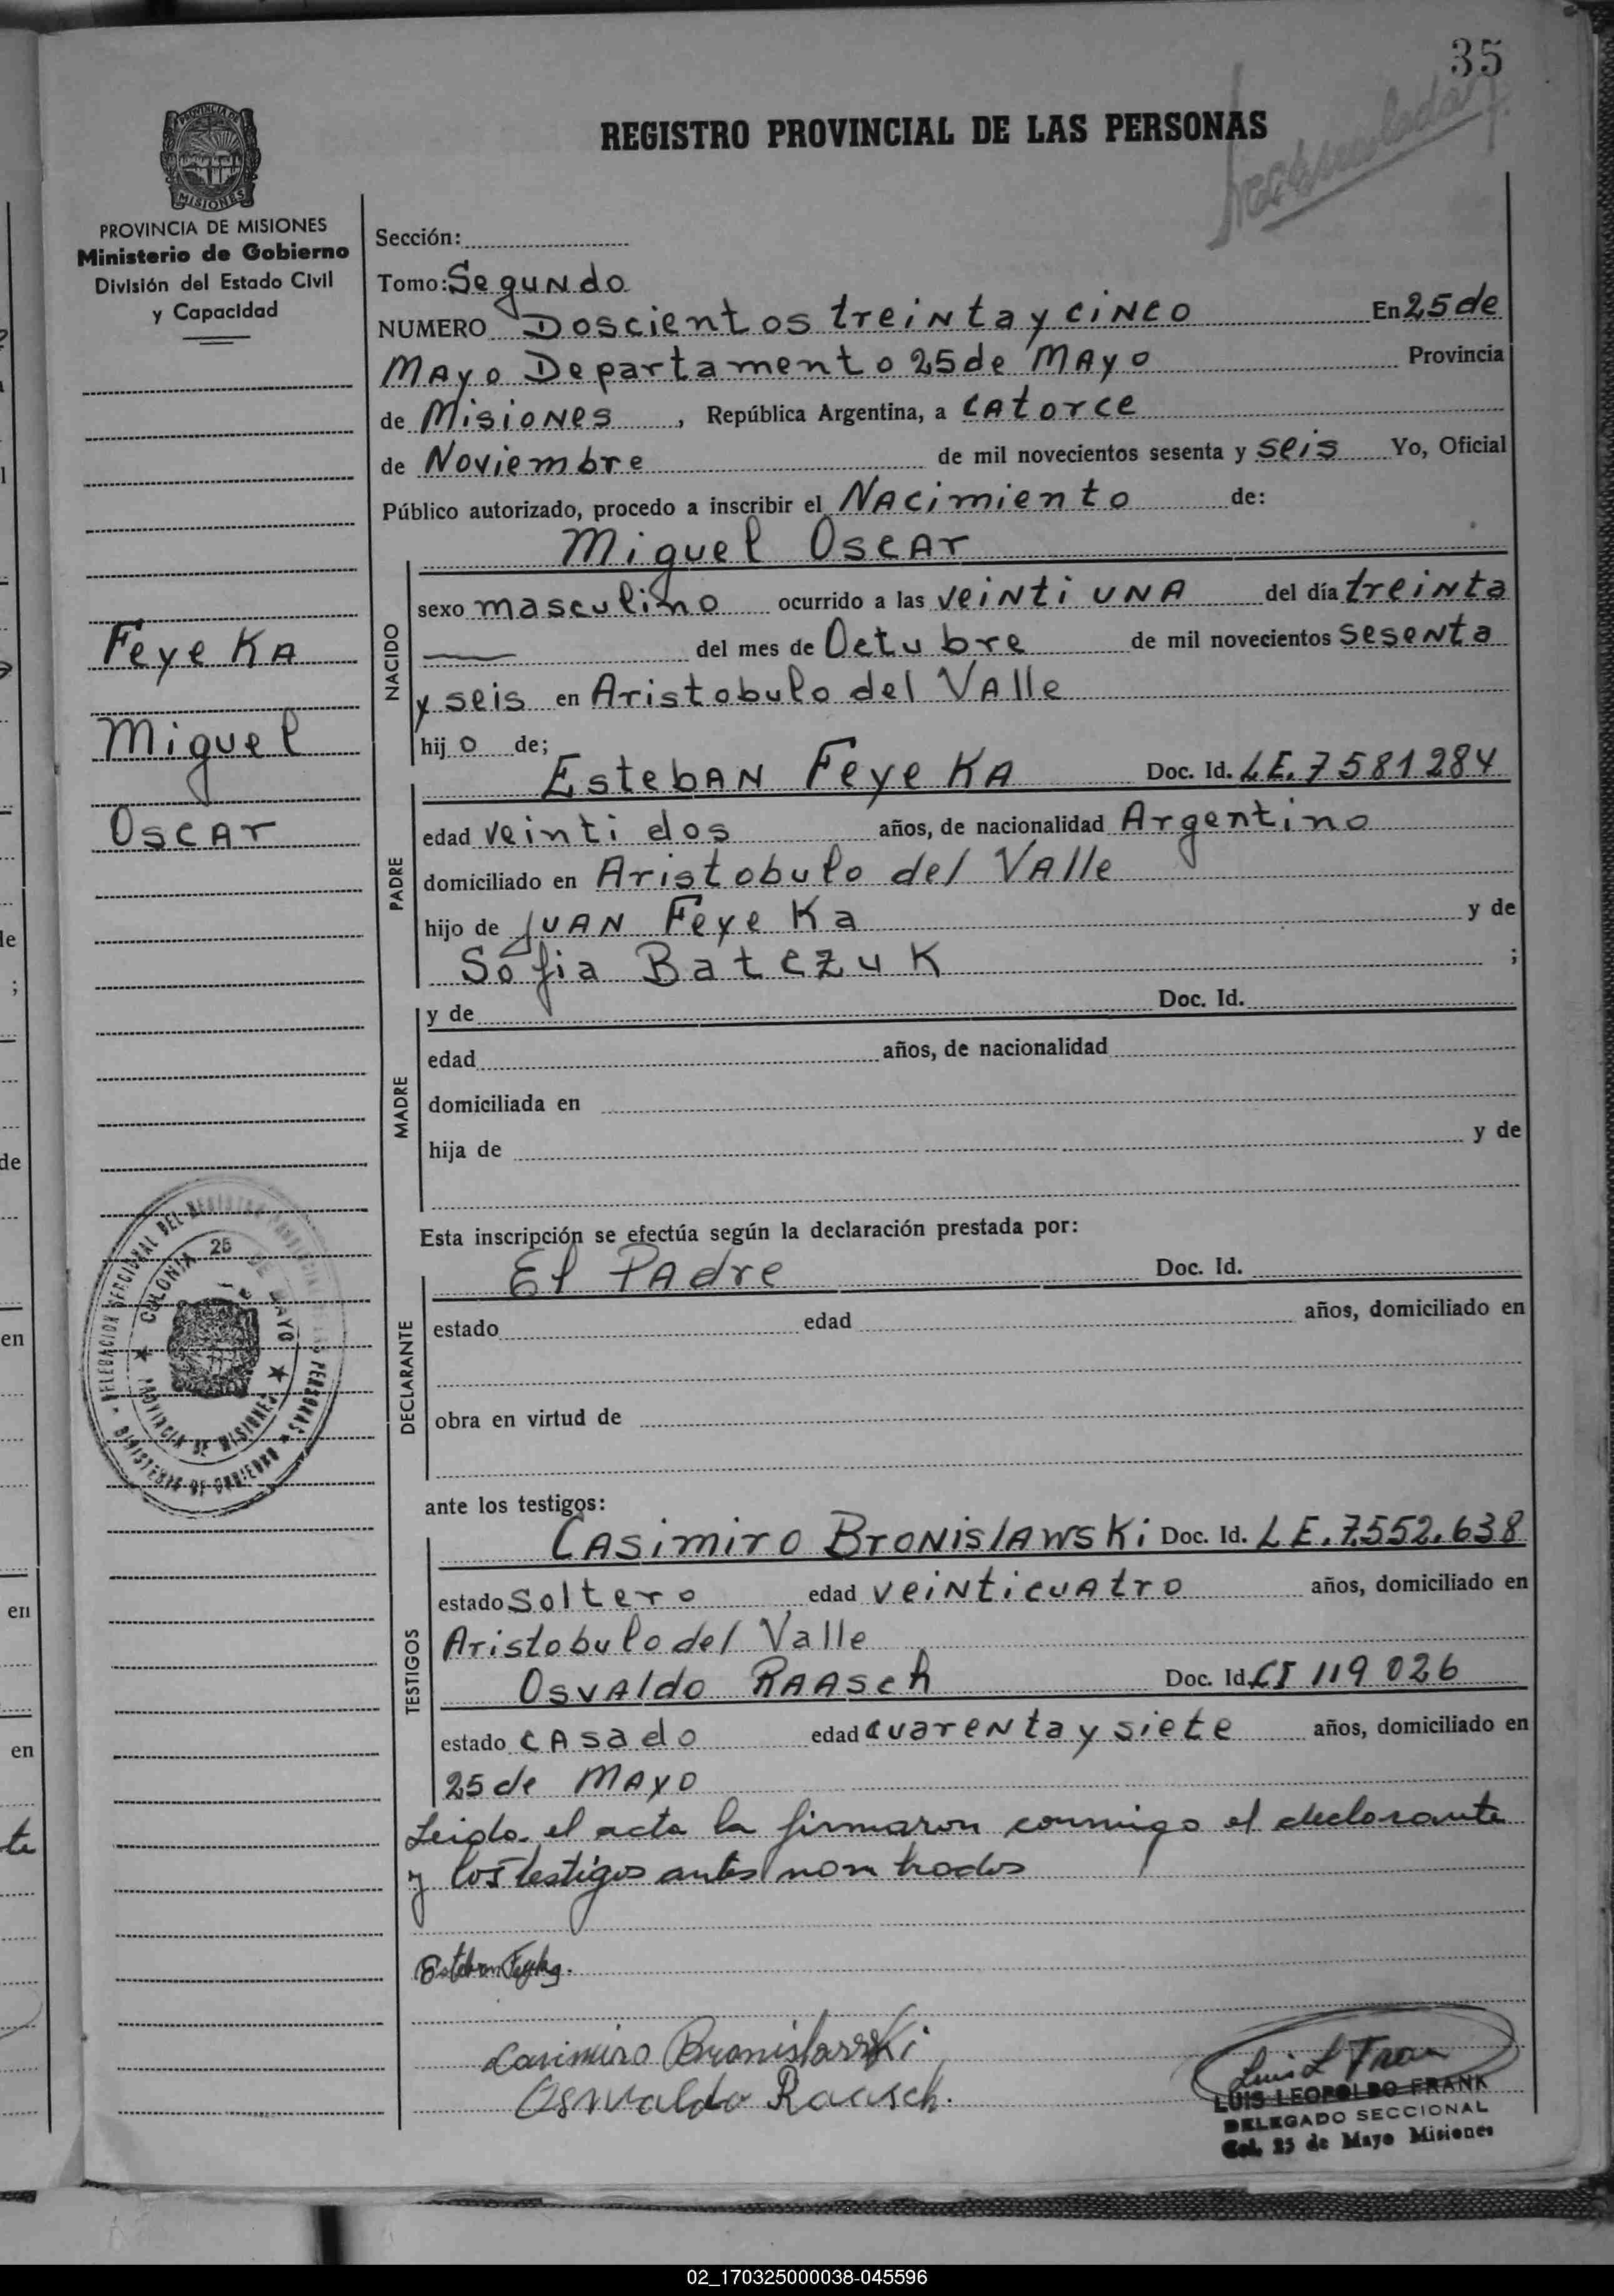 35
REGISTRO PROVINCIAL DE LAS PERSONAS
PROVINCIA DE
MISIONES
PROVINCIA DE MISIONES
Ministerio de Gobierno
División del Estado Civil
y Capacidad
Sección:
Tomo: Segundo
NUMERO Doscientos treinta y cinco En 25 de
Mayo Departamento 25 de Mayo Provincia
de Misiones, República Argentina, a catorce
de Noviembre de mil novecientos sesenta y seis Yo, Oficial
Público autorizado, procedo a inscribir el Nacimiento de:
Miguel Oscar
NACIDO
sexo masculino ocurrido a las veinti una del día treinta
del mes de Octubre de mil novecientos sesenta
y seis en Aristobulo del Valle
hijo de;
Feyeka
Miguel
Oscar
PADRE
Esteban Feyeka Doc. Id. LE. 7581284
edad veinti dos años, de nacionalidad Argentino
domiciliado en Aristobulo del Valle
hijo de Juan Feyeka y de
Sofia Batczuk ;
MADRE
y de Doc. Id.
edad años, de nacionalidad
domiciliada en
hija de y de
Esta inscripción se efectúa según la declaración prestada por:
DECLARANTE
El Padre Doc. Id.
estado edad años, domiciliado en
obra en virtud de
DELEGACION SECCIONAL DEL REGISTRO PROVINCIAL DE LAS PERSONAS
MINISTERIO DE GOBIERNO
COLONIA 25 DE MAYO
PROVINCIA DE MISIONES
ante los testigos:
TESTIGOS
Casimiro Bronislawski Doc. Id. LE. 7.552.638
estado soltero edad veinticuatro años, domiciliado en
Aristobulo del Valle
Osvaldo Raasch Doc. Id. CI 119026
estado casado edad cuarenta y siete años, domiciliado en
25 de Mayo
Leida el acta la firmaron conmigo el declarante
y los testigos antes nombrados
Esteban Feyka.
Casimiro Bronislawski
Osvaldo Raasch.
Luis L Fran
LUIS LEOPOLDO FRANK
DELEGADO SECCIONAL
Col. 25 de Mayo Misiones
02_170325000038-045596